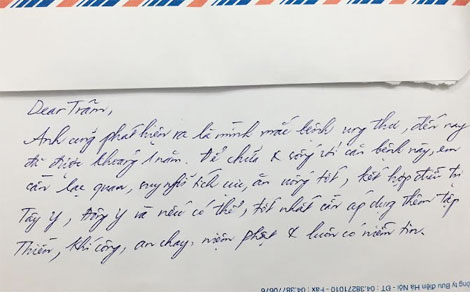 Dear Trâm,
Anh cũng phát hiện ra là mình mắc bệnh ung thư, đến nay
đã được khoảng 1 năm. Để chữa & sống với căn bệnh này, em
cần lạc quan, suy nghĩ tích cực, ăn uống tốt, kết hợp điều trị
Tây y, Đông y và nếu có thể, tốt nhất cần áp dụng thêm tập
Thiền, khí công, ăn chay, niệm phật & luôn có niềm tin.
ng ty Bưu điện Hà Nội - ĐT : 04.38271010 - Fax : 04.38270676